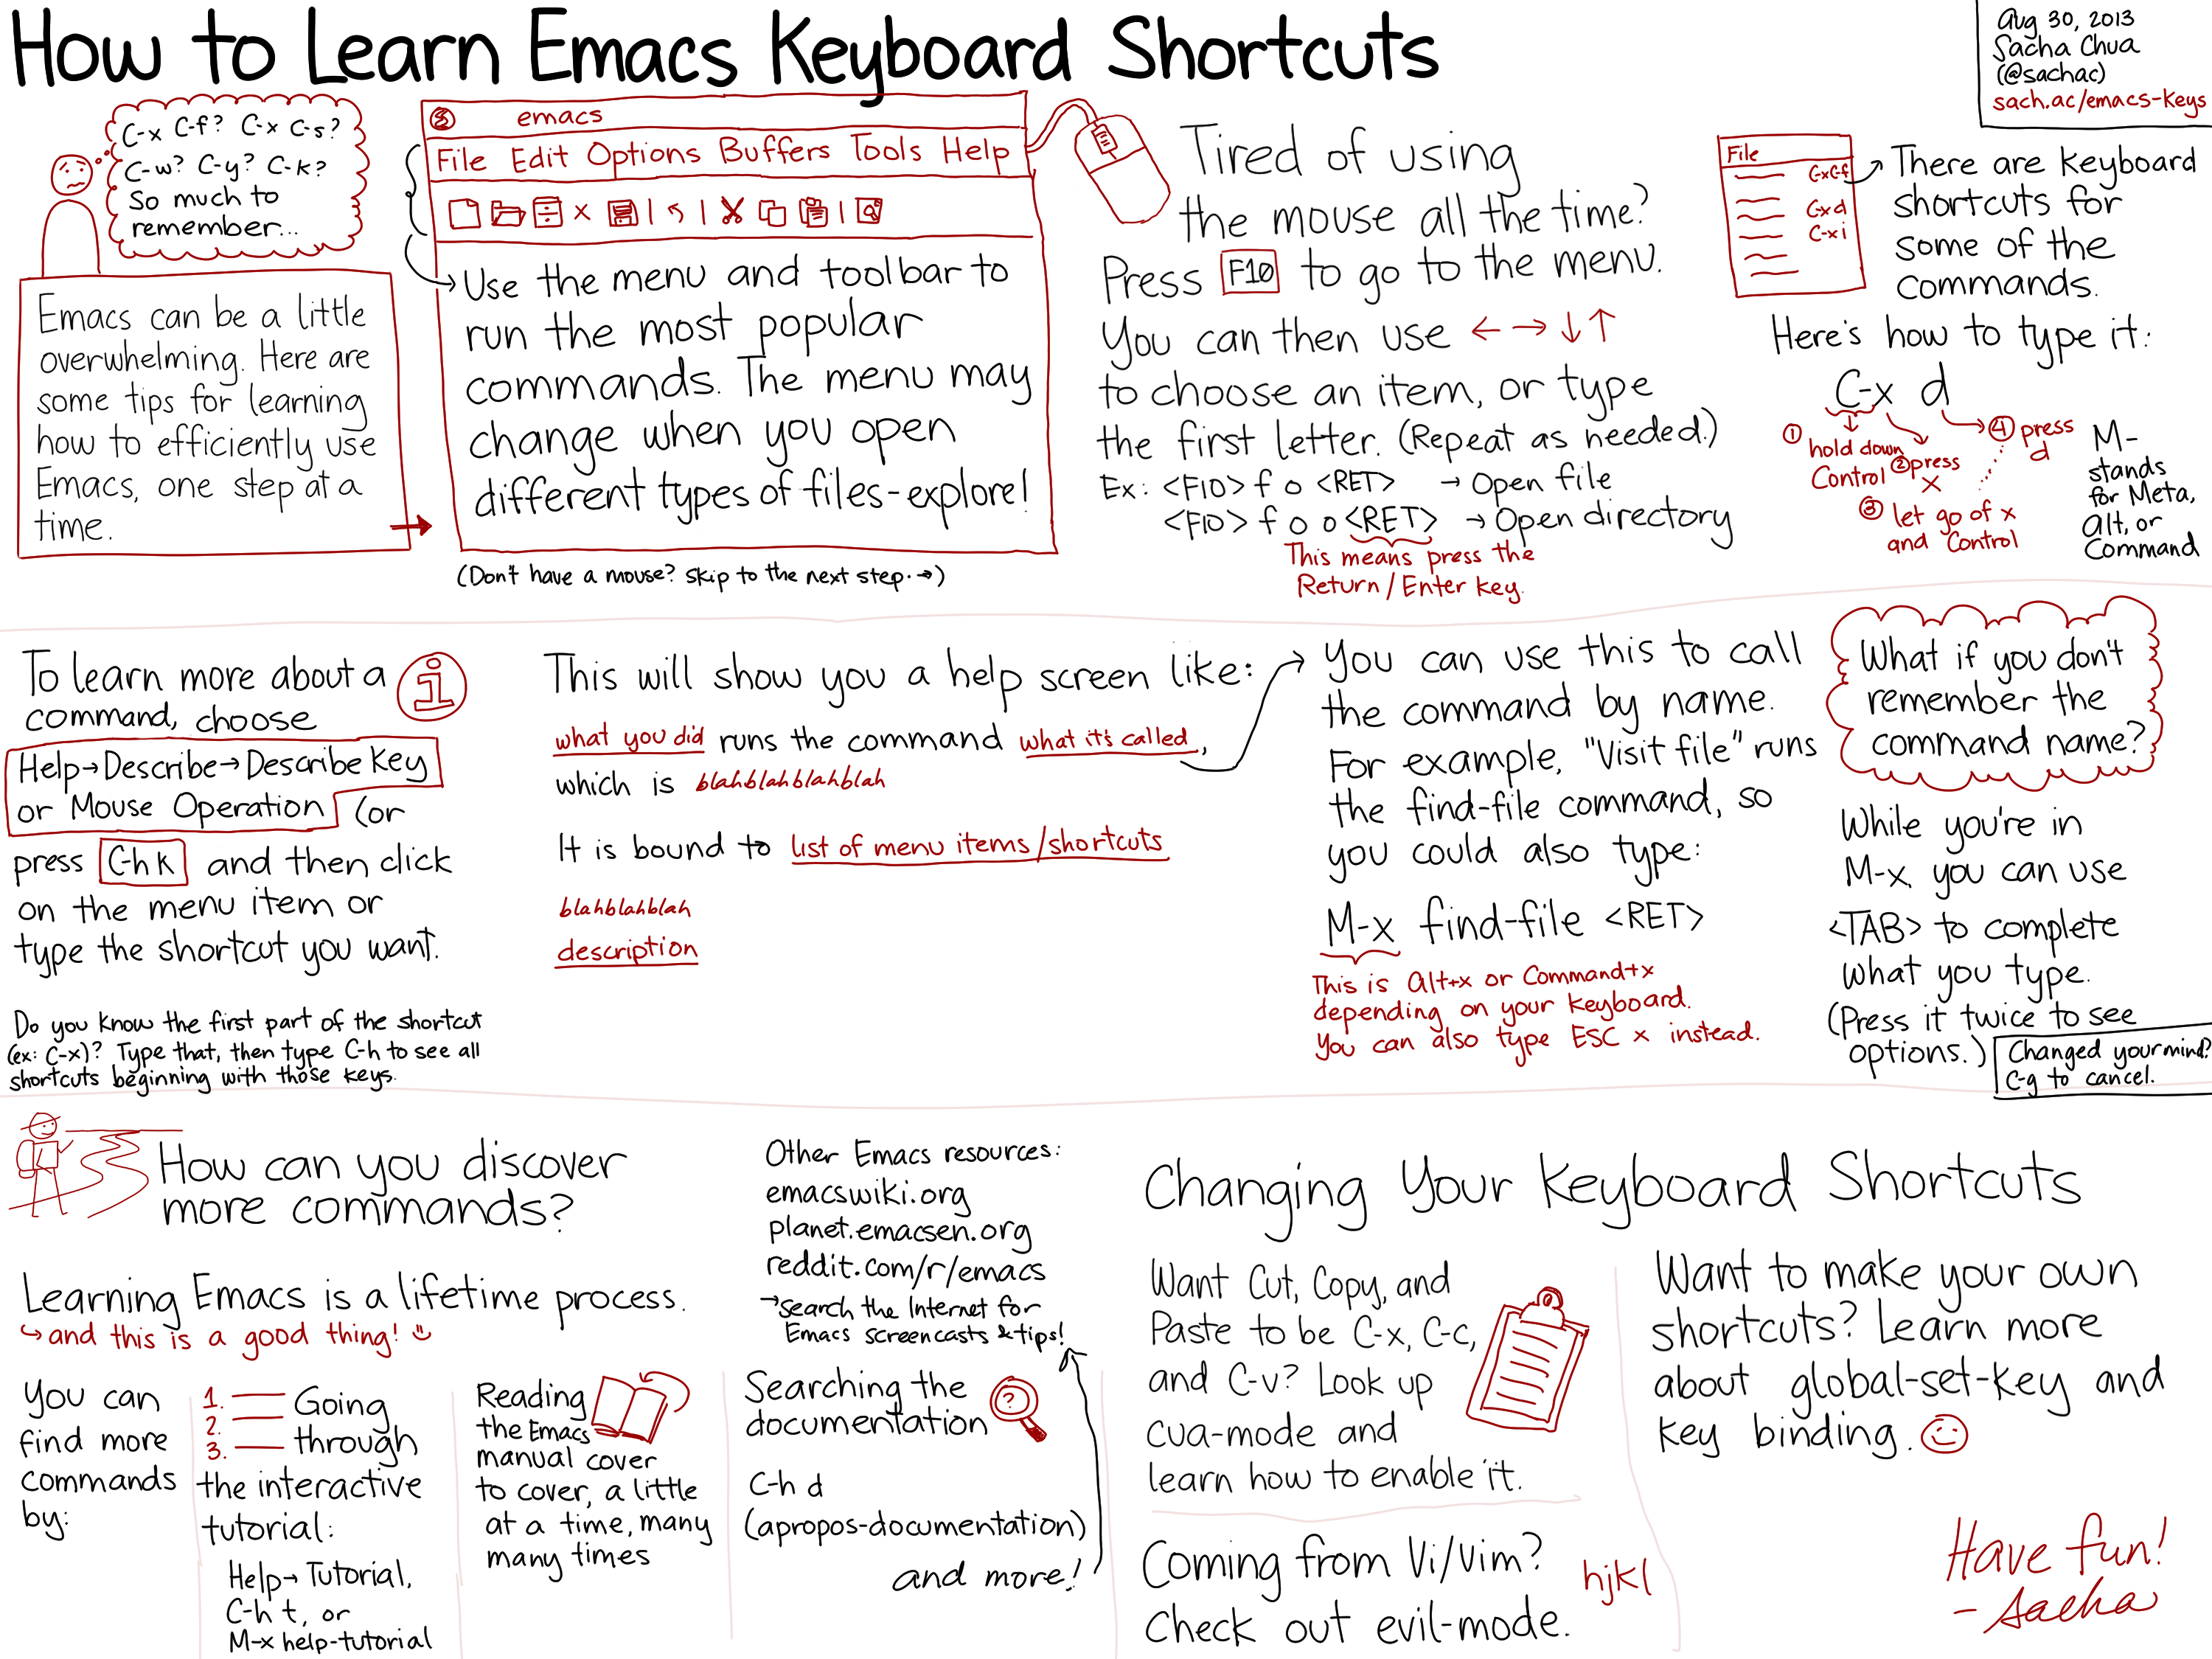 How to Learn Emacs Keyboard Shortcuts
Aug 30, 2013
Sacha Chua
(@sachac)
sach.ac/emacs-keys
C-x C-f? C-x C-s?
C-w? C-y? C-k?
So much to
remember...
Emacs can be a little
overwhelming. Here are
some tips for learning
how to efficiently use
Emacs, one step at a
time.
emacs
File Edit Options Buffers Tools Help
Use the menu and toolbar to
run the most popular
commands. The menu may
change when you open
different types of files - explore!
(Don't have a mouse? Skip to the next step.→)
Tired of using
the mouse all the time?
Press F10 to go to the menu.
You can then use ← → ↓ ↑
to choose an item, or type
the first letter. (Repeat as needed.)
Ex: <F10> f o <RET> → Open file
<F10> f o o <RET> → Open directory
This means press the
Return/Enter key.
File
C-x C-f
C-x d
C-x i
There are keyboard
shortcuts for
some of the
commands.
Here's how to type it:
C-x d
① hold down
Control
② press
x
③ let go of x
and Control
④ press
d
M-
stands
for Meta,
Alt, or
Command
To learn more about a
command, choose
Help→Describe→Describe Key
or Mouse Operation (or
press C-h k and then click
on the menu item or
type the shortcut you want.
Do you know the first part of the shortcut
(ex: C-x)? Type that, then type C-h to see all
shortcuts beginning with those keys.
This will show you a help screen like:
what you did runs the command what it's called,
which is blahblahblahblah
It is bound to list of menu items/shortcuts
blahblahblah
description
You can use this to call
the command by name.
For example, "Visit file" runs
the find-file command, so
you could also type:
M-x find-file <RET>
This is Alt+x or Command+x
depending on your keyboard.
You can also type ESC x instead.
What if you don't
remember the
command name?
While you're in
M-x, you can use
<TAB> to complete
what you type.
(Press it twice to see
options.)
Changed your mind?
C-g to cancel.
How can you discover
more commands?
Learning Emacs is a lifetime process.
↪and this is a good thing!
You can
find more
commands
by:
1.
2.
3.
Going
through
the interactive
tutorial:
Help→Tutorial,
C-h t, or
M-x help-tutorial
Reading
the Emacs
manual cover
to cover, a little
at a time, many
many times
Other Emacs resources:
emacswiki.org
planet.emacsen.org
reddit.com/r/emacs
→search the Internet for
Emacs screencasts & tips!
Searching the
documentation
?
C-h d
(apropos-documentation)
and more!
Changing Your Keyboard Shortcuts
Want Cut, Copy, and
Paste to be C-x, C-c,
and C-v? Look up
cua-mode and
learn how to enable it.
Coming from Vi/Vim?
Check out evil-mode.
hjkl
Want to make your own
shortcuts? Learn more
about global-set-key and
key binding.
Have fun!
- Sacha